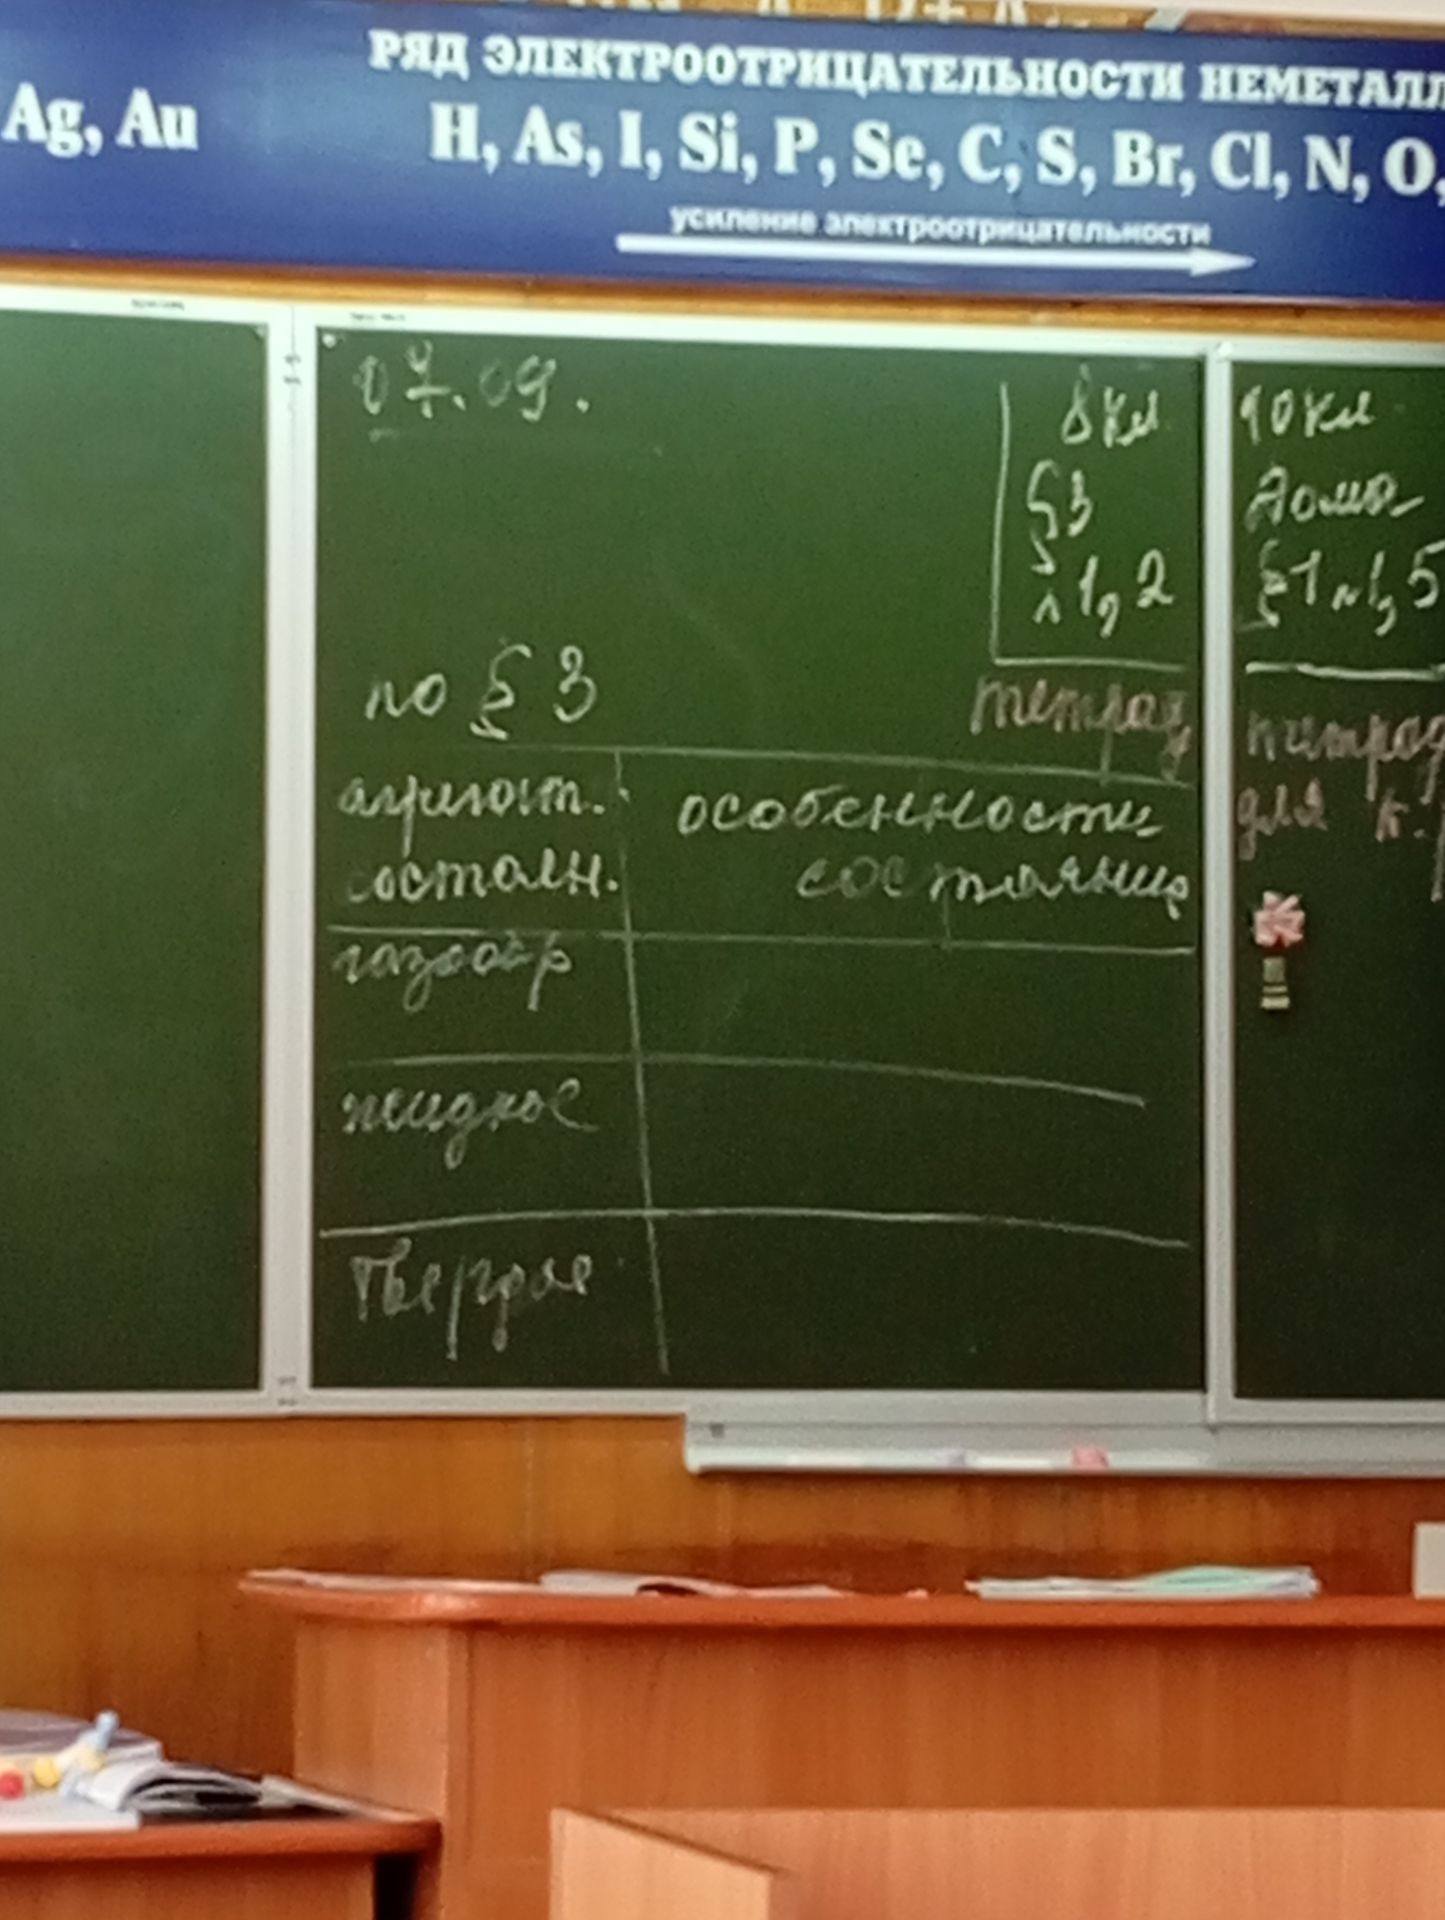 Ag, Au
РЯД ЭЛЕКТРООТРИЦАТЕЛЬНОСТИ НЕМЕТАЛЛ
H, As, I, Si, P, Se, C, S, Br, Cl, N, O,
усиление электроотрицательности
07.09.
8 кл
§3
1, 2
тетрад
по §3
агрегат. особенности
состоян. состояния
газообр
жидкое
твердое
10 кл
дома
§1 1, 5
тетрад
для к.